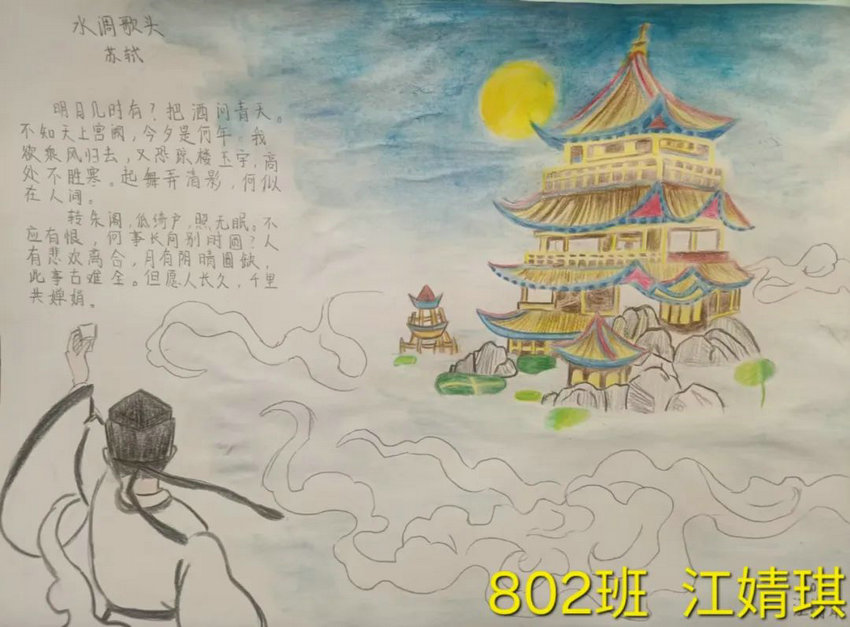 水调歌头
苏轼
明月几时有？把酒问青天。
不知天上宫阙，今夕是何年。我
欲乘风归去，又恐琼楼玉宇，高
处不胜寒。起舞弄清影，何似
在人间。
转朱阁，低绮户，照无眠。不
应有恨，何事长向别时圆？人
有悲欢离合，月有阴晴圆缺，
此事古难全。但愿人长久，千里
共婵娟。
802班 江婧琪